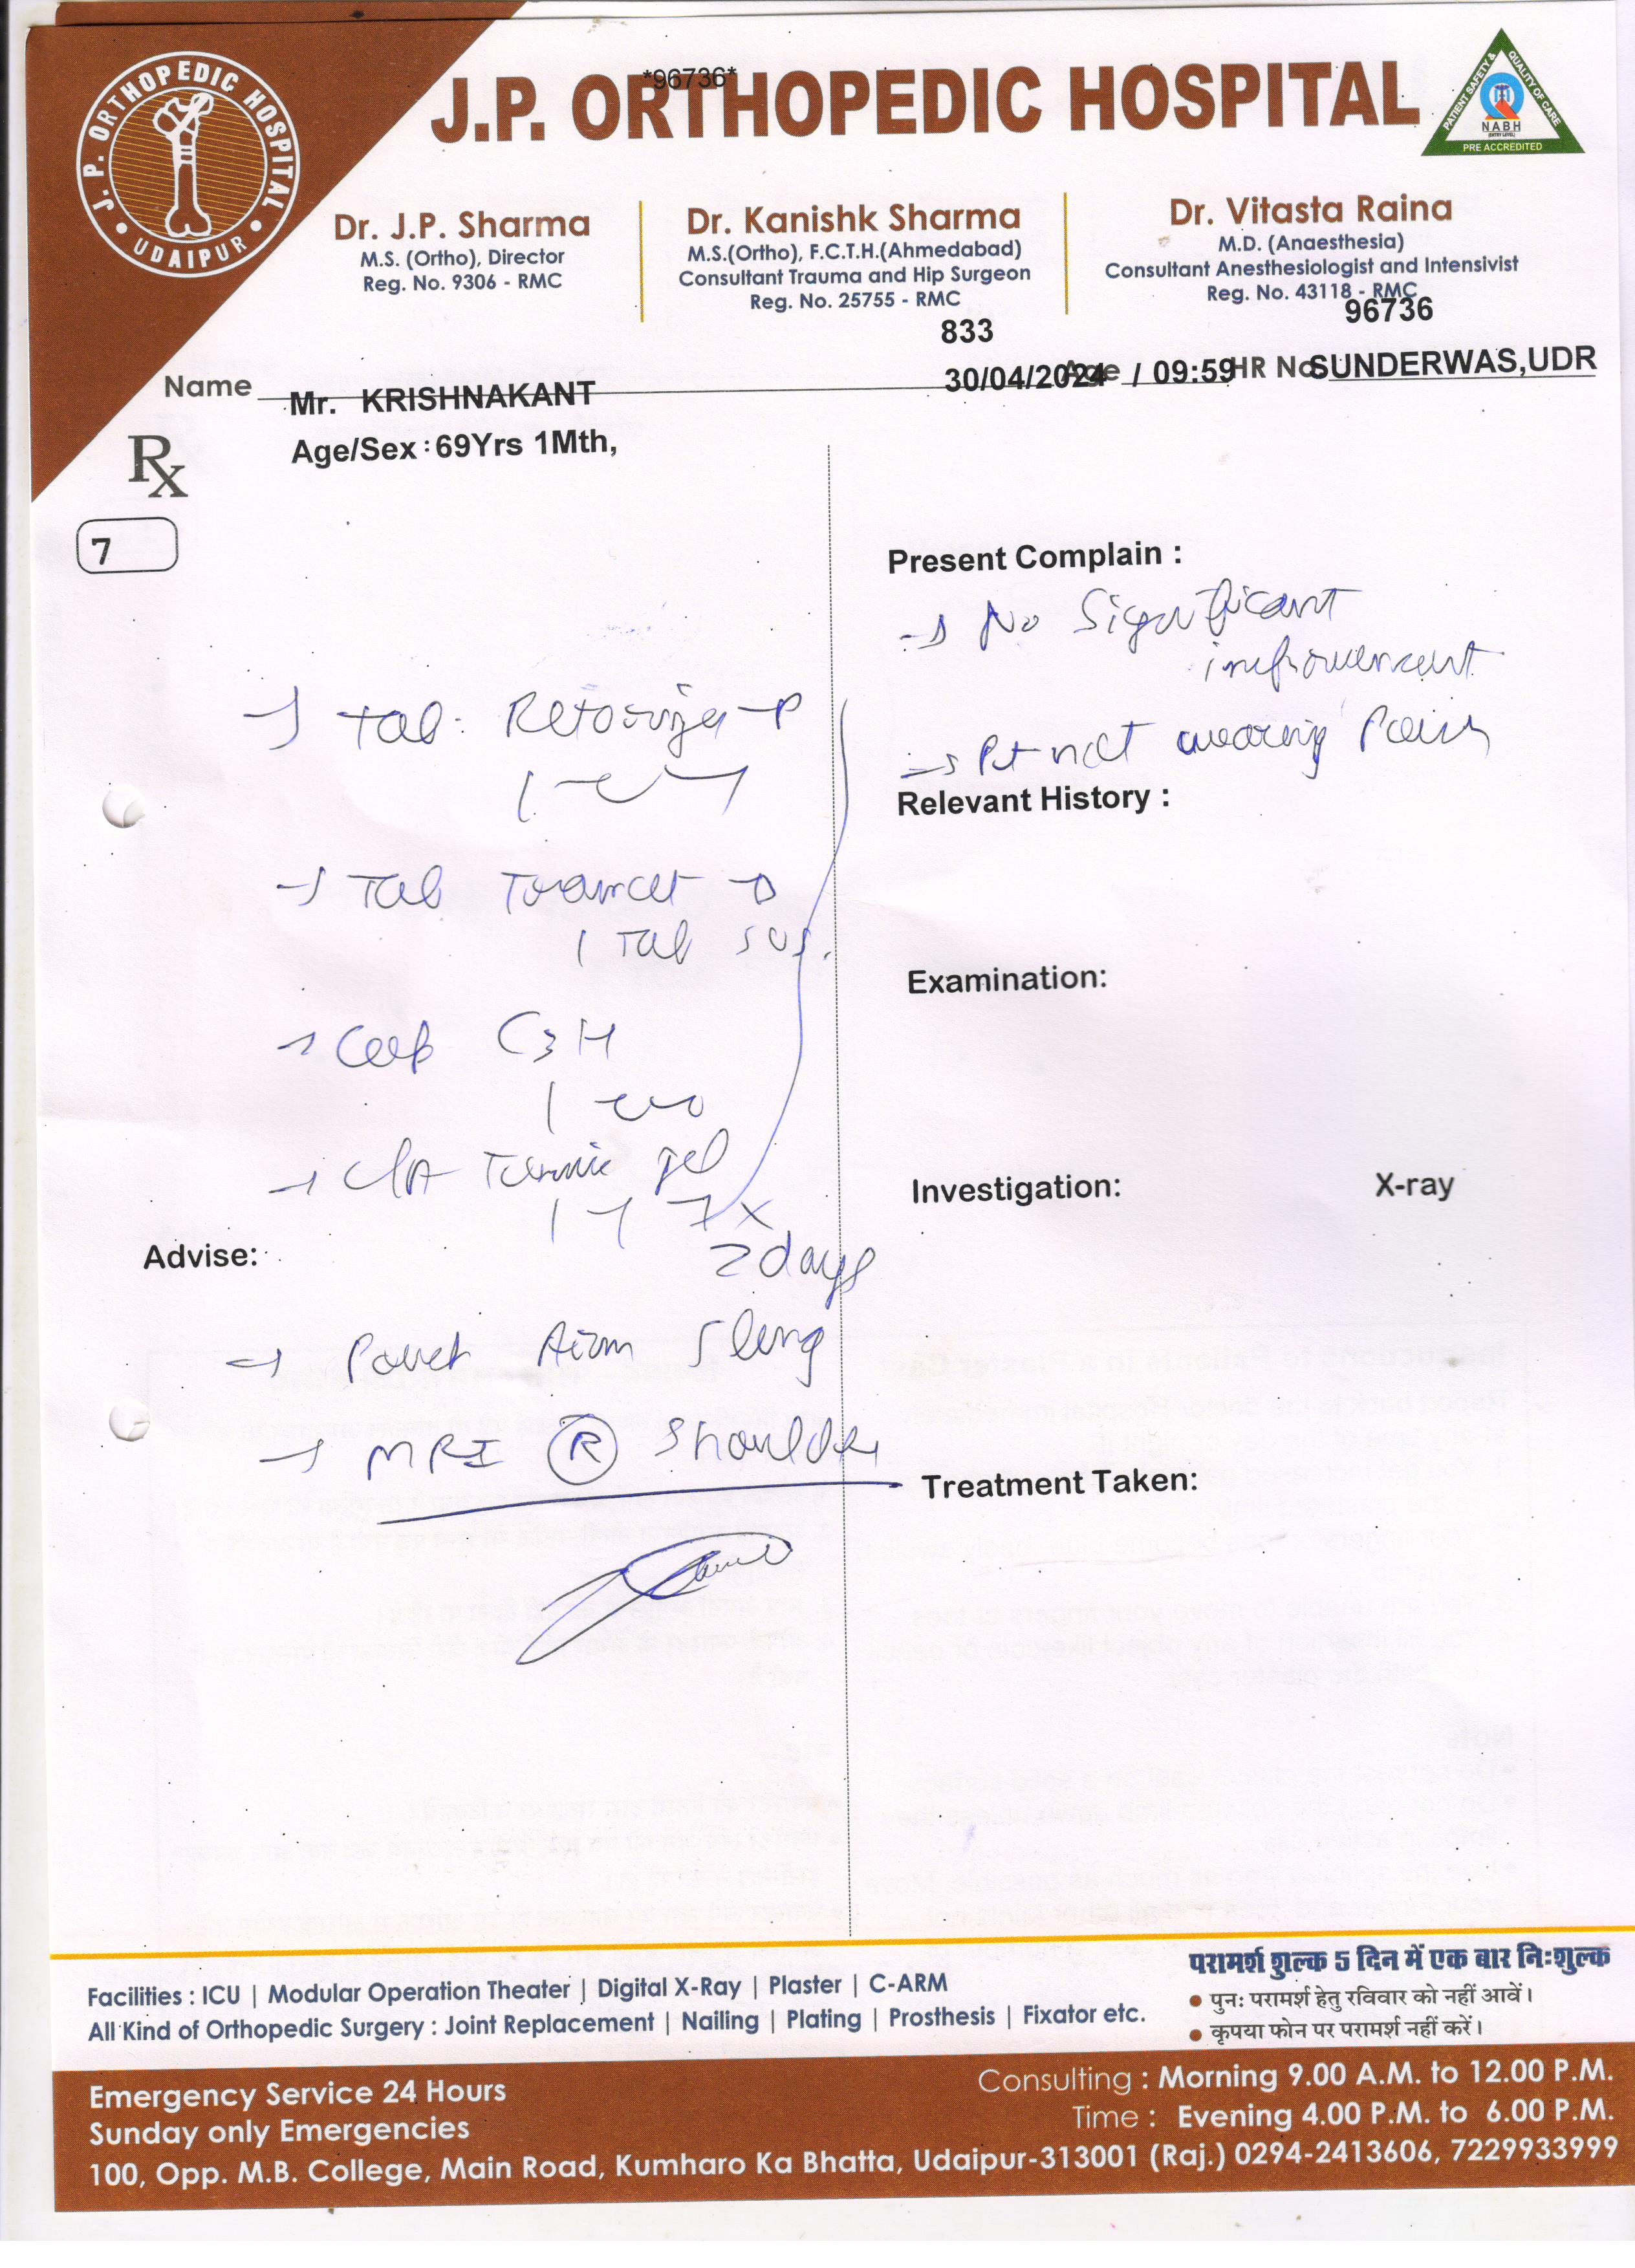 *96736*
J.P. ORTHOPEDIC HOSPITAL
J. P. ORTHOPEDIC HOSPITAL
• UDAIPUR •
PATIENT SAFETY & QUALITY OF CARE
NABH
(ENTRY LEVEL)
PRE ACCREDITED
Dr. J.P. Sharma
M.S. (Ortho), Director
Reg. No. 9306 - RMC
Dr. Kanishk Sharma
M.S.(Ortho), F.C.T.H.(Ahmedabad)
Consultant Trauma and Hip Surgeon
Reg. No. 25755 - RMC
Dr. Vitasta Raina
M.D. (Anaesthesia)
Consultant Anesthesiologist and Intensivist
Reg. No. 43118 - RMC
833
96736
Name Mr. KRISHNAKANT 30/04/2024 Age / 09:59 HR No SUNDERWAS,UDR
Age/Sex : 69Yrs 1Mth,
Rx
7
Present Complain :
→ No Significant
improvement
→ Pt not wearing
Relevant History :
→ Tab.
→ Tab
1 Tab SOS.
Examination:
→ Cap C3H
→ gel
Investigation: X-ray
Advise:
2 days
→ Arm Sling
→ MRI R Shoulder
Treatment Taken:
Facilities : ICU | Modular Operation Theater | Digital X-Ray | Plaster | C-ARM
All Kind of Orthopedic Surgery : Joint Replacement | Nailing | Plating | Prosthesis | Fixator etc.
परामर्श शुल्क 5 दिन में एक बार निःशुल्क
• पुनः परामर्श हेतु रविवार को नहीं आवें।
• कृपया फोन पर परामर्श नहीं करें।
Emergency Service 24 Hours
Sunday only Emergencies
Consulting : Morning 9.00 A.M. to 12.00 P.M.
Time : Evening 4.00 P.M. to 6.00 P.M.
100, Opp. M.B. College, Main Road, Kumharo Ka Bhatta, Udaipur-313001 (Raj.) 0294-2413606, 7229933999